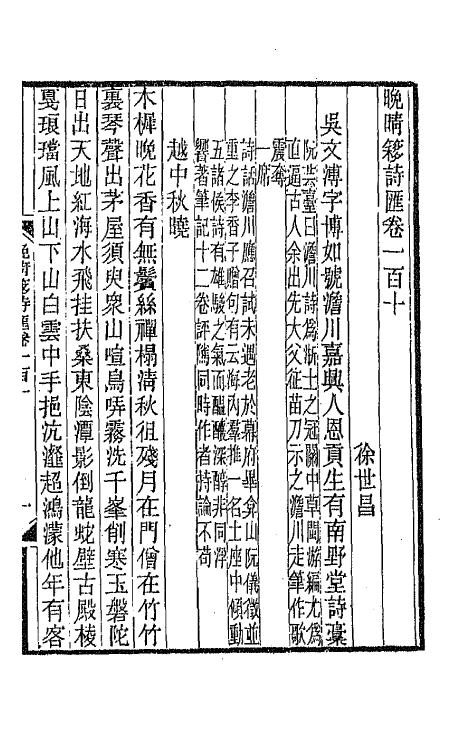 晚晴簃詩匯卷一百十
徐世昌
吳文溥字博如號澹川嘉興人恩貢生有南野堂詩稾
阮芸臺曰澹川詩為浙士之冠關中草閩游編尤為
直逼古人余出先大父征苗刀示之澹川走筆作歌
震奪
一席
詩話澹川應召試未遇老於幕府畢弇山阮儀徵並
重之李香子贈句有云海內羣推一名士座中傾動
五諸侯詩有雄駿之氣而醞釀深醇非同浮
響著筆記十二卷評隲同時作者持論不苟
越中秋曉
木樨晚花香有無鬢絲禪榻淸秋徂殘月在門僧在竹竹
裏琴聲出茅屋須臾衆山喧鳥哢霧洗千峯削寒玉磐陀
日出天地紅海水飛挂扶桑東陰潭影倒龍蛇壁古殿棱
戛琅璫風上山下山白雲中手挹沆瀣超鴻濛他年有客
晚晴簃詩匯卷一百十
一